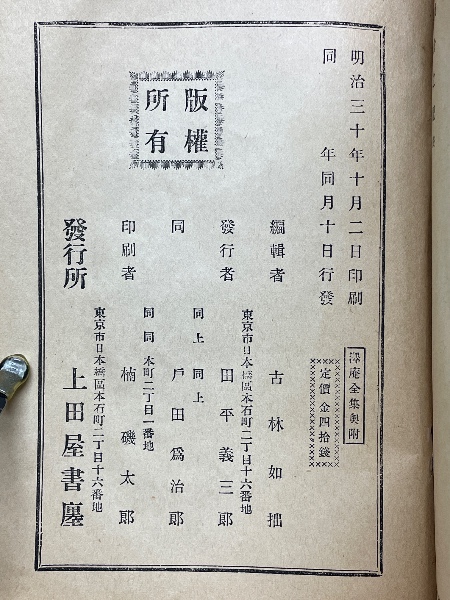 明治三十年十月二日印刷
同年同月十日行發
澤庵全集奥附
定價金四拾錢
版權
所有
編輯者 古林如拙
東京市日本橋區本石町二丁目十六番地
發行者 田平義三郎
同上同上
同 戶田爲治郎
同同本町二丁目一番地
印刷者 楠磯太郎
東京市日本橋區本石町二丁目十六番地
發行所 上田屋書店